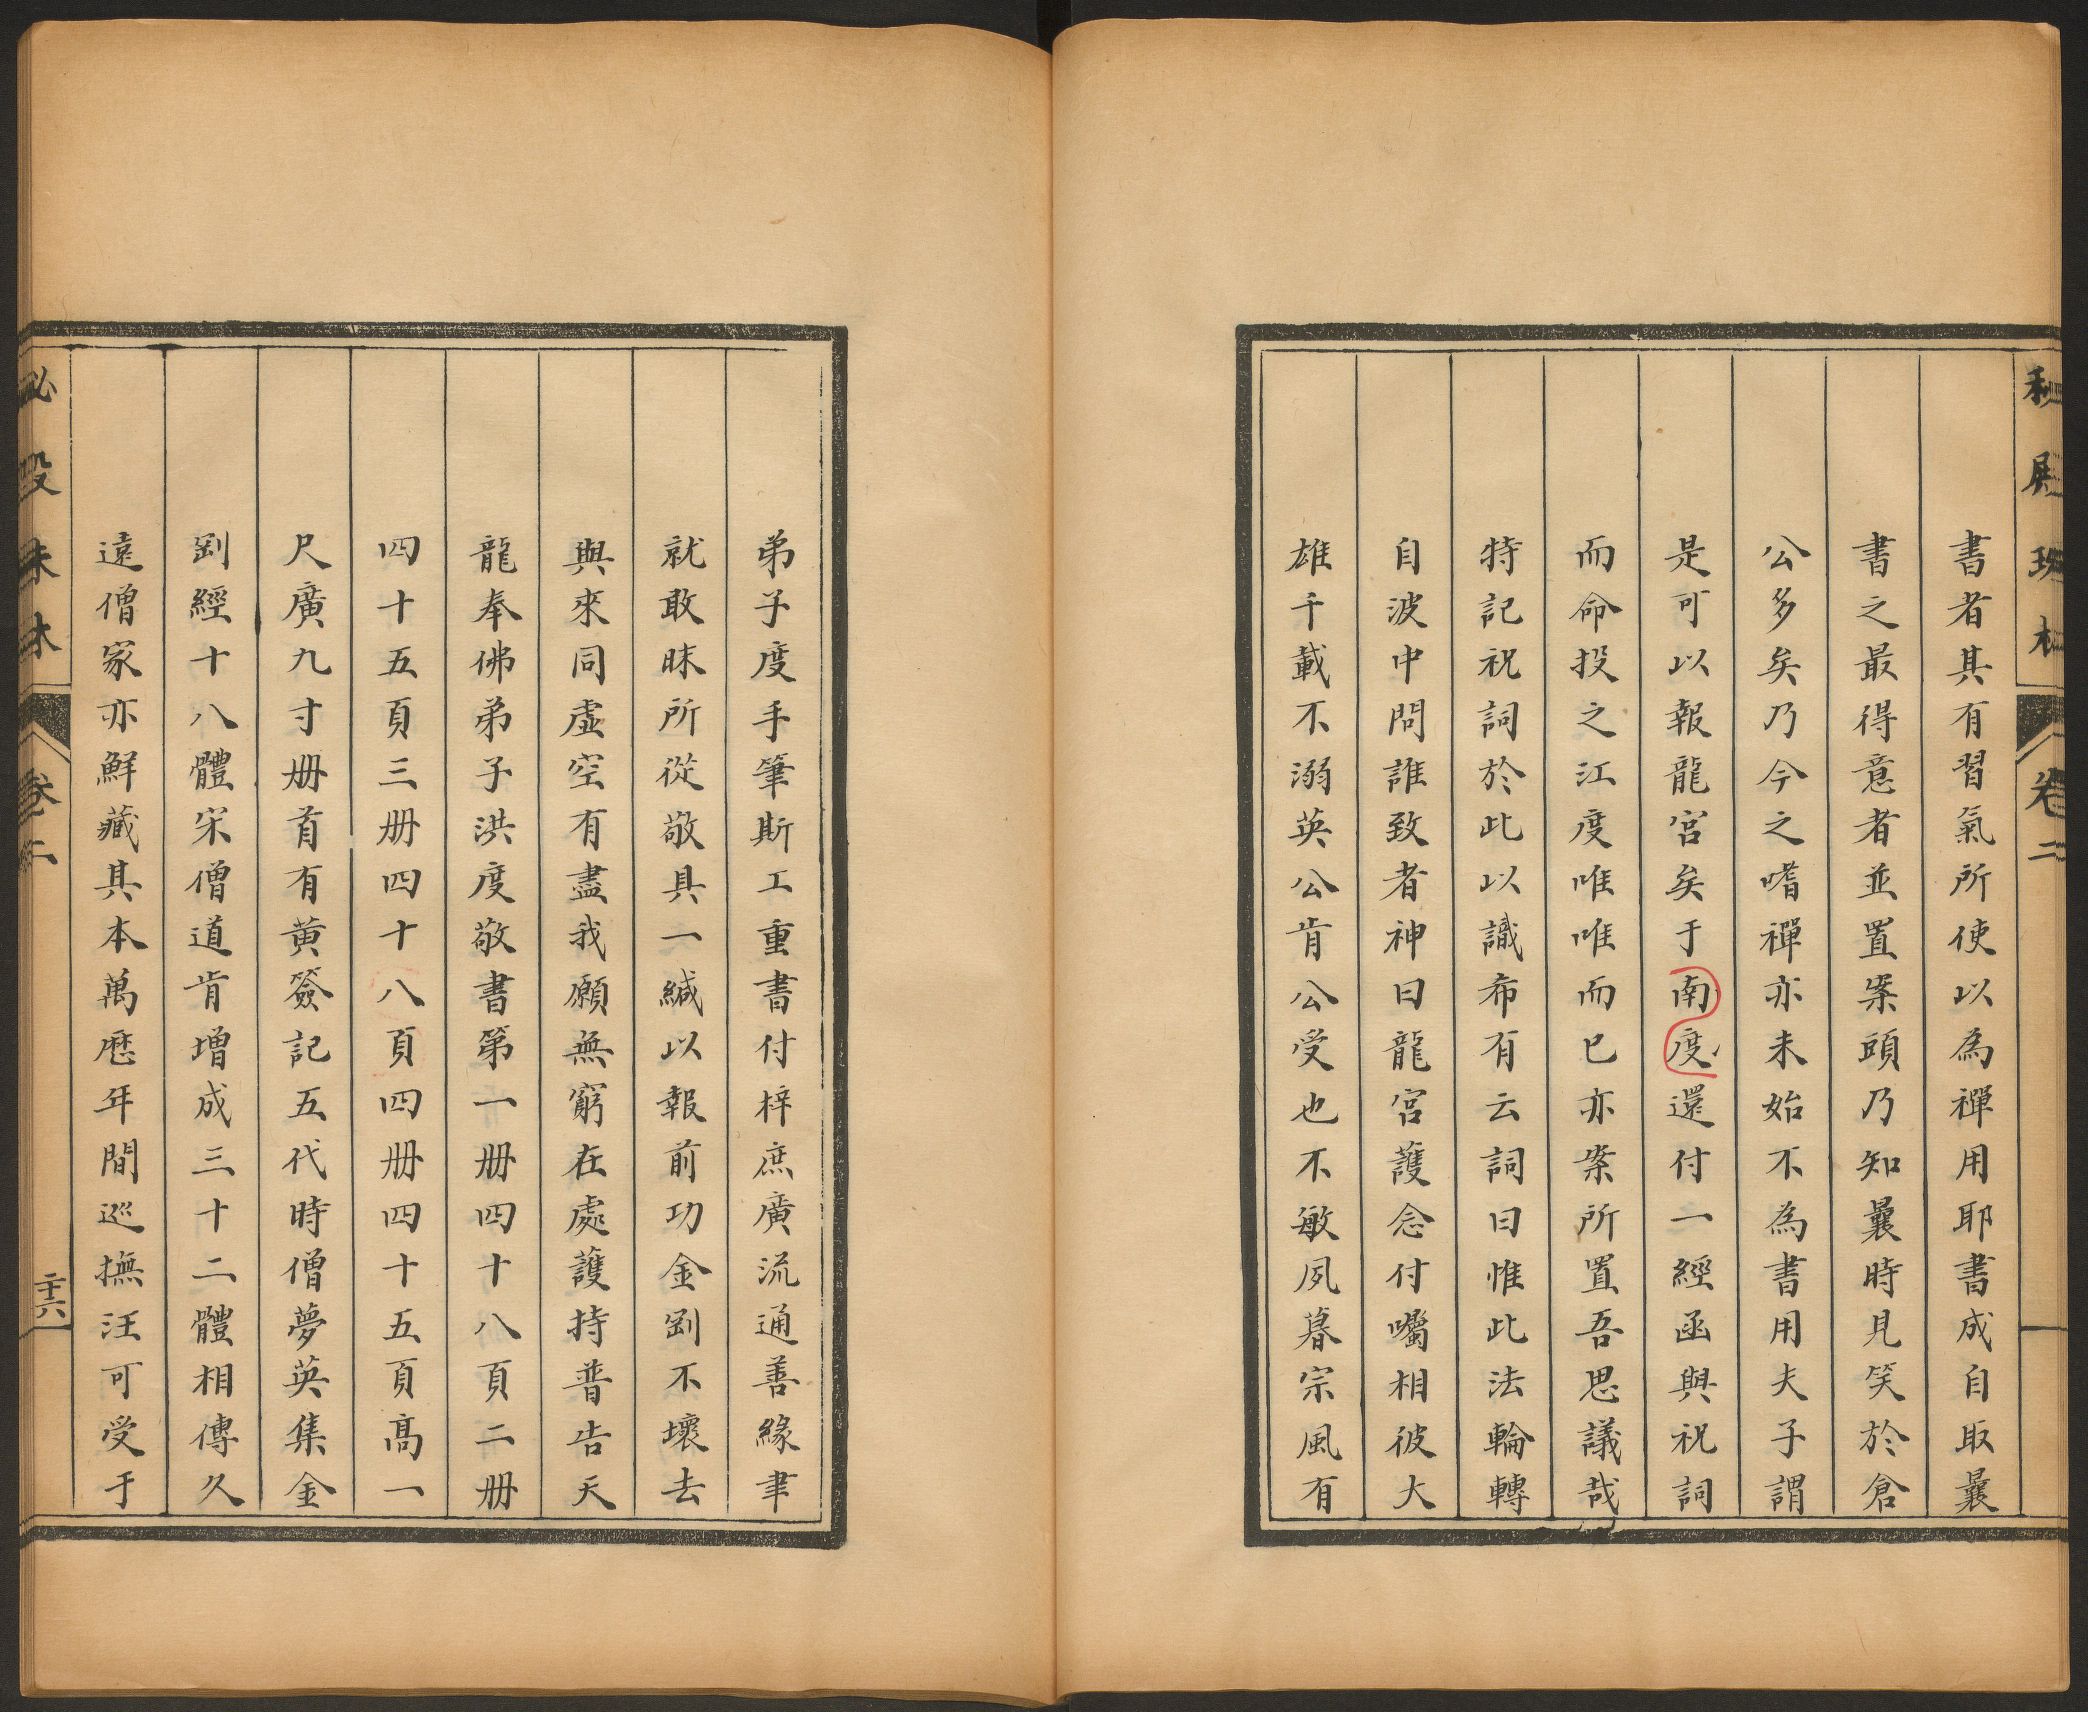 書者其有習氣所使以為禪用耶書成自取曩
書之最得意者並置案頭乃知曩時見笑於倉
公多矣乃今之嗜禪亦未始不為書用夫子謂
是可以報龍宮矣于南度還付一經函與祝詞
而命投之江度唯唯而已亦案所置吾思議哉
特記祝詞於此以識希有云詞曰惟此法輪轉
自波中問誰致者神曰龍宮護念付囑相彼大
雄千載不溺英公肯公受也不敏夙暮宗風有
弟子度手筆斯工重書付梓庶廣流通善緣聿
就敢昧所從敬具一緘以報前功金剛不壞去
與來同虛空有盡我願無窮在處護持普告天
龍奉佛弟子洪度敬書第一册四十八頁二册
四十五頁三册四十八頁四册四十五頁高一
尺廣九寸册首有黄簽記五代時僧夢英集金
剛經十八體宋僧道肯增成三十二體相傳久
遠僧家亦鮮藏其本萬歷年間巡撫汪可受于
卷二
二十六